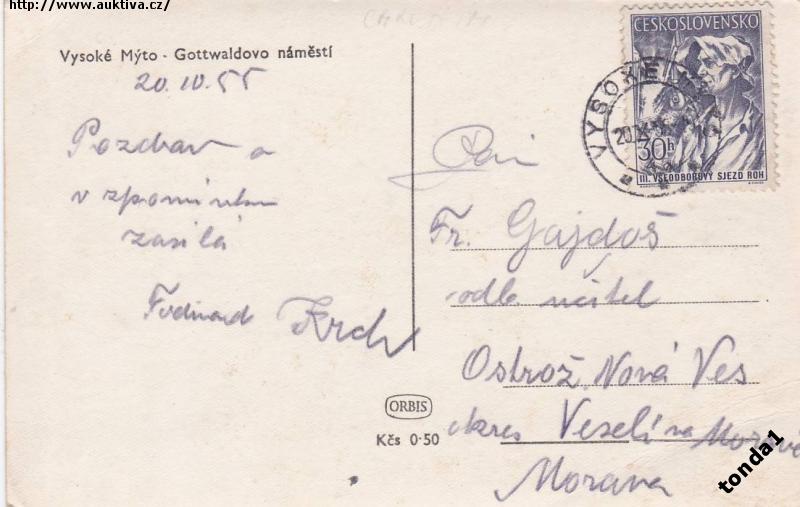 http://www.auktiva.cz/
Vysoké Mýto - Gottwaldovo náměstí
20. 10. 55
Pozdrav a
vzpomínku
zasílá
Ferdinand Krch
ČESKOSLOVENSKO
30h
III. VŠEODBOROVÝ SJEZD ROH
VYSOKÉ
Pan
Fr. Gajdoš
odb. učitel
Ostrož. Nová Ves
okres Veselí na Moravě
Morava
ORBIS
Kčs 0·50
tonda1